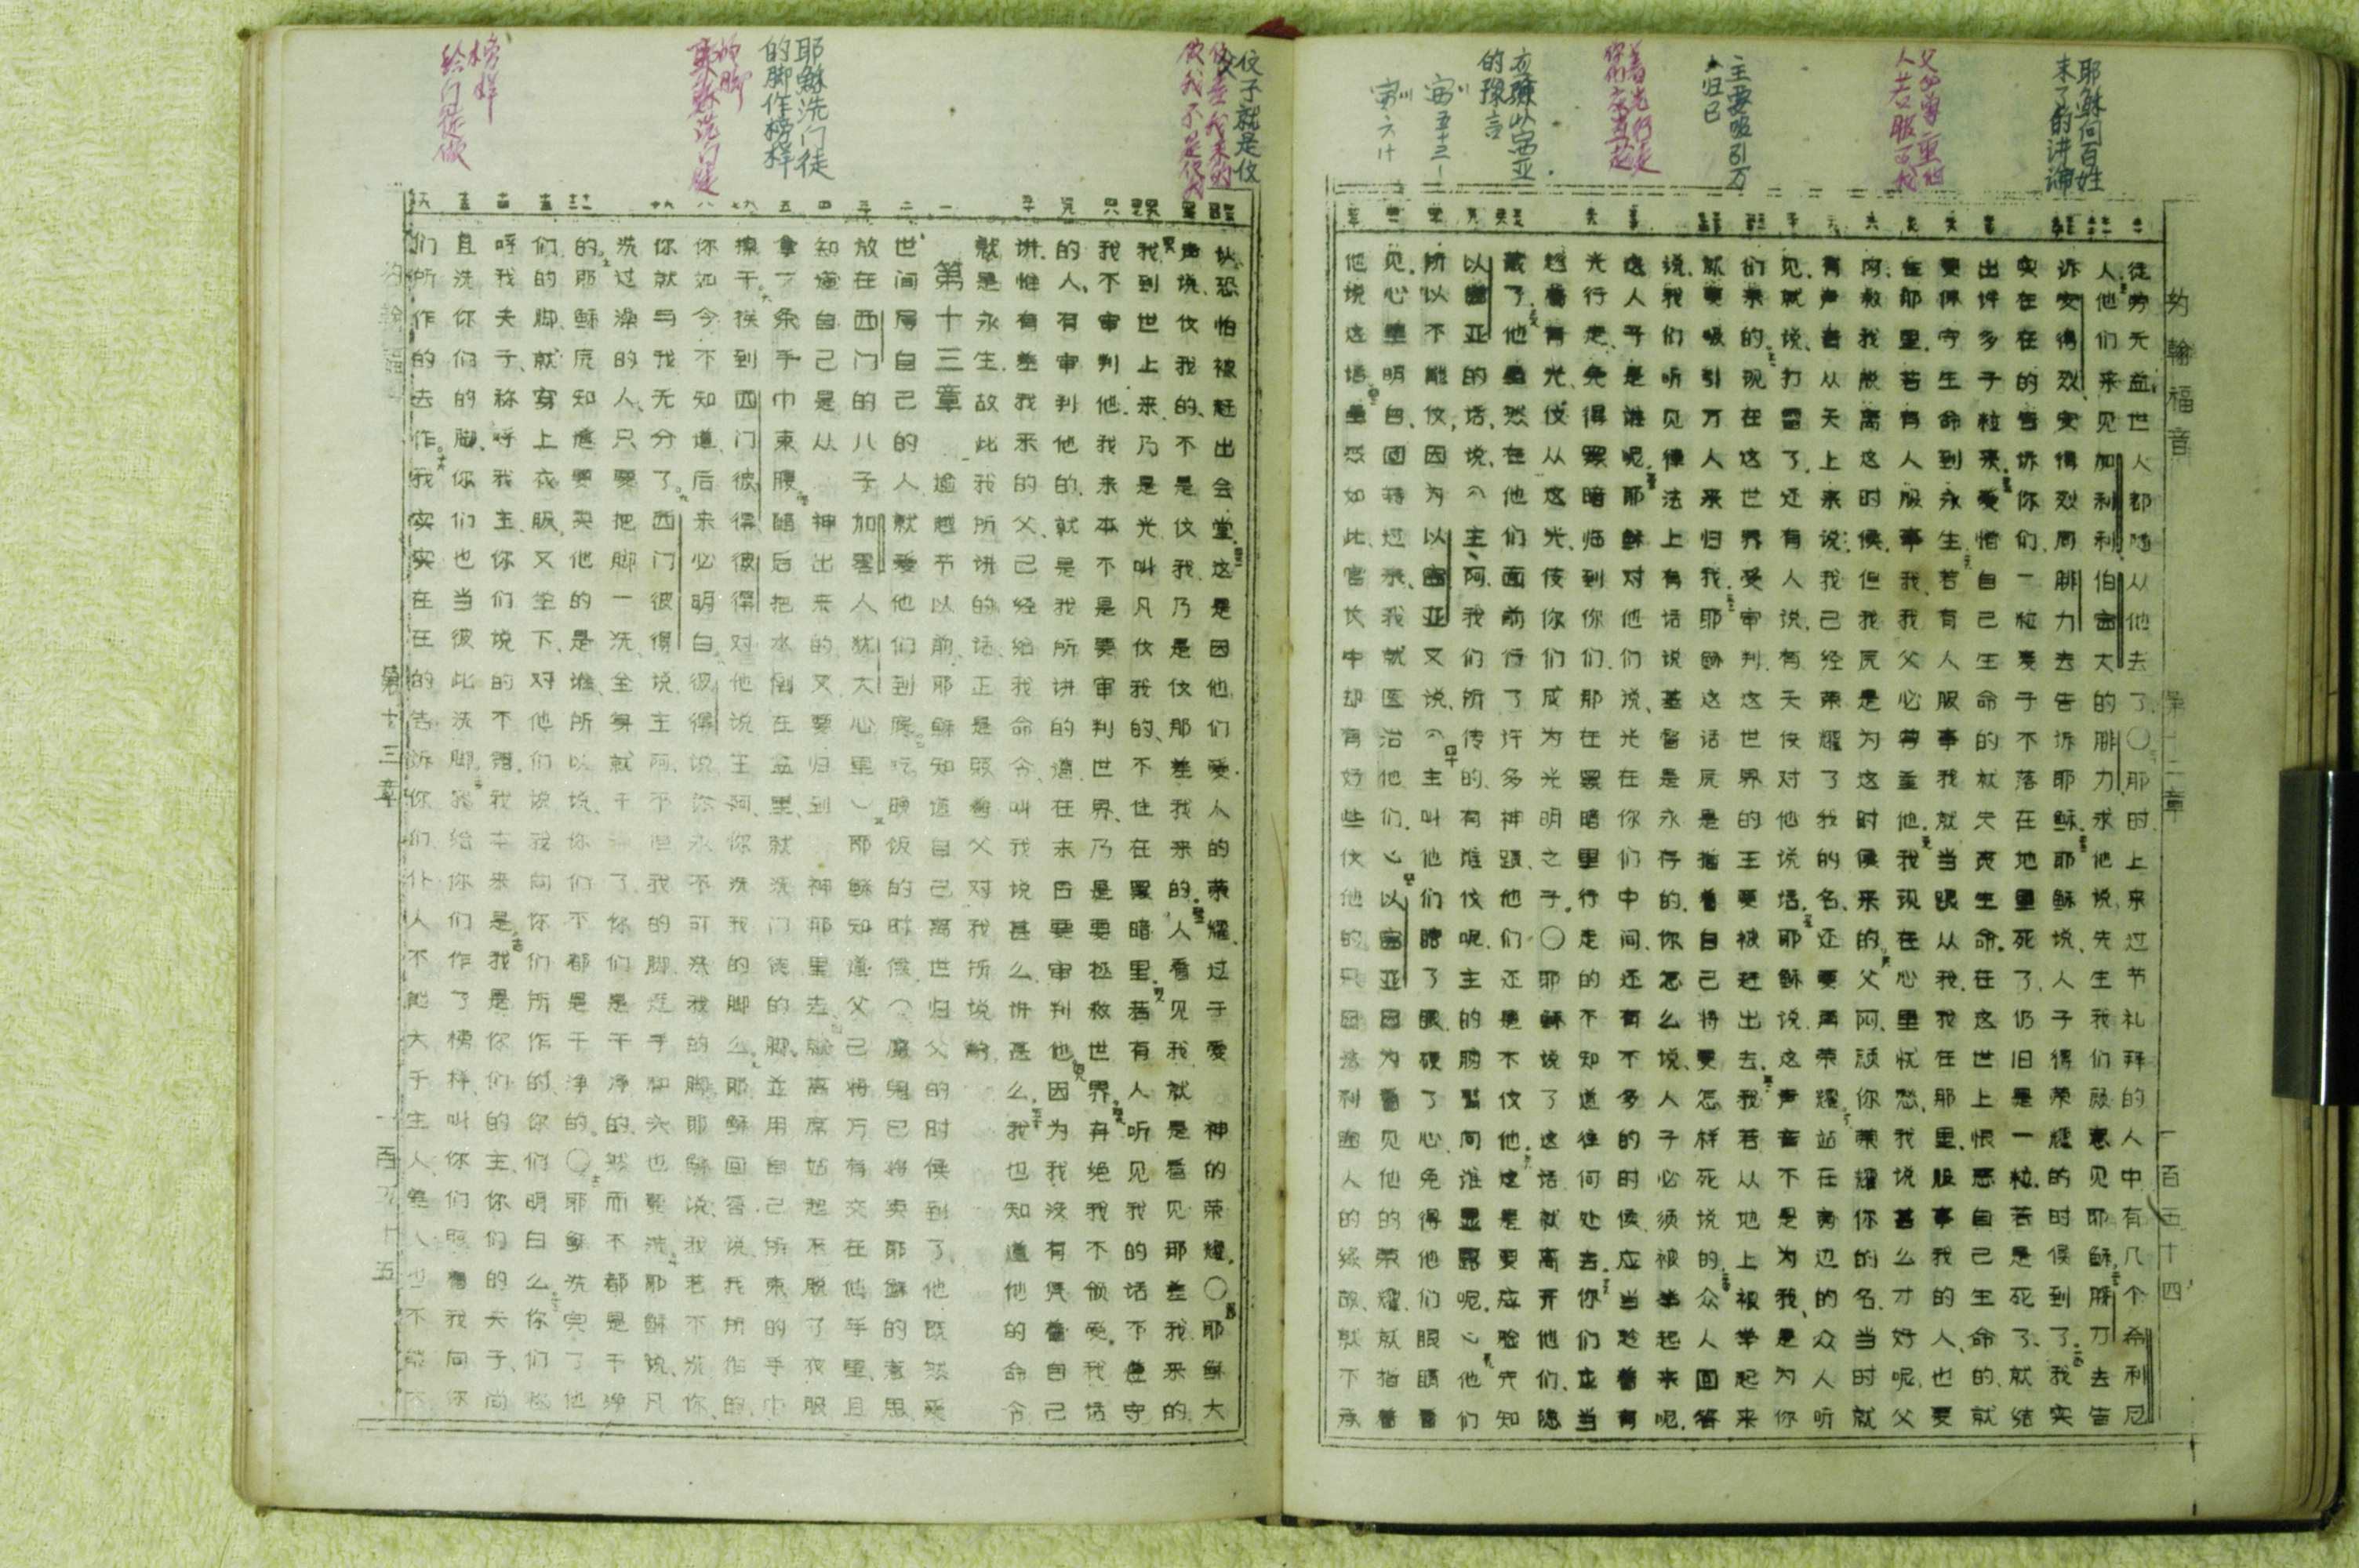 耶稣向百姓
末了的讲演
父必尊重他
人若服事我
主要吸引万
人归己
着光行走
你们应当趁
应验以赛亚
的豫言
赛五十三
赛六
约翰福音 第十二章 一百五十四
徒劳无益世人都随从他去了〇那时上来过节礼拜的人中有几个希利尼
人、他们来见加利利伯赛大的腓力求他说、先生我们愿意见耶稣腓力去告
诉安得烈安得烈同腓力去告诉耶稣耶稣说、人子得荣耀的时候到了、我实
实在在的告诉你们一粒麦子不落在地里死了、仍旧是一粒若是死了、就结
出许多子粒来、爱惜自己生命的就失丧生命、在这世上恨恶自己生命的、就
要保守生命到永生若有人服事我就当跟从我、我在那里、服事我的人、也要
在那里、若有人服事我、我父必尊重他、我现在心里忧愁、我说甚么才好呢、父
阿、救我脱离这时候、但我原是为这时候来的、父阿、愿你荣耀你的名、当时就
有声音从天上来说、我己经荣耀了我的名、还要再荣耀、站在旁边的众人听
见、就说、打雷了、还有人说、有天使对他说话、耶稣说这声音不是为我、是为你
们来的、现在这世界受审判、这世界的王要被赶出去、我若从地上被举起来
就要吸引万人来归我、耶稣这话是指着自己将要怎样死说的、众人回答
说、我们听见律法上有话说、基督是永存的、你怎么说、人子必须被举起来呢、
这人子是谁呢、耶稣对他们说、光在你们中间还有不多的时候、应当趁着有
光行走、免得黑暗临到你们那在黑暗里行走的不知道往何处去、你们应当
趁着有光、伩从这光、使你们成为光明之子、〇耶稣说了这话、就离开他们、隐
藏了、他虽然在他们面前行了许多神蹟他们还是不伩他、这是要应验先知
以赛亚的话、说、主阿、我们所传的、有谁伩呢、主的膀臂向谁显露呢、他们
所以不能伩、因为以赛亚又说、主叫他们瞎了眼硬了心、免得他们眼睛看
见、心里明白、回转过来、我就医治他们、以赛亚因为看见他的荣耀、就指着
他说这话、虽然如此、官长中却有好些伩他的只因法利赛人的缘故、就不承
伩子就是伩父
耶稣洗门徒
的脚作榜样
的脚
耶稣洗门徒
榜样
给门徒做
认、恐怕被赶出会堂、这是因他们爱人的荣耀、过于爱神的荣耀、〇耶稣大
声说、伩我的、不是伩我、乃是伩那差我来的、人看见我、就是看见那差我来的
我到世上来、乃是光叫凡伩我的、不住在黑暗里、若有人听见我的话不遵守
我不审判他、我来本不是要审判世界、乃是要拯救世界、弃绝我不领受我话
的人、有审判他的、就是我所讲的道、在末日要审判他、因为我没有凭着自己
讲、惟有差我来的父、己经给我命令、叫我说甚么、讲甚么、我也知道他的命令
就是永生、故此我所讲的话、正是照着父对我所说的
第十三章 逾越节以前、耶稣知道自己离世归父的时候到了、他既然爱
世间属自己的人、就爱他们到底、吃晚饭的时候（魔鬼已将卖耶稣的意思
放在西门的儿子加畧人犹大心里）耶稣知道父己将万有交在他手里、且
知道自己是从神出来的又要归到神那里去、就离席站起来脱了衣服
拿了条手巾束腰、随后把水倒在盆里、就洗门徒的脚、並用自己所束的手巾
擦干、挨到西门彼得、彼得对他说、主阿、你洗我的脚么、耶稣回答说、我所作的、
你如今不知道、后来必明白、彼得说、你永不可洗我的脚、耶稣说、我若不洗你、
你就与我无分了、西门彼得说、主阿、不但我的脚、连手和头也要洗、耶稣说、凡
洗过澡的人、只要把脚一洗、全身就干净了、你们是干净的、然而不都是干净
的、耶稣原知道要卖他的是谁、所以说、你们不都是干净的、〇耶稣洗完了他
们的脚、就穿上衣服、又坐下、对他们说、我向你们所作的、你们明白么、你们称
呼我夫子、称呼我主、你们说的不错、我本来是、我是你们的主、你们的夫子、尚
且洗你们的脚、你们也当彼此洗脚、我给你们作了榜样、叫你们照着我向你
们所作的去作、我实实在在的告诉你们、仆人不能大于主人、差人也不能大
约翰福 第十三章 一百五十五